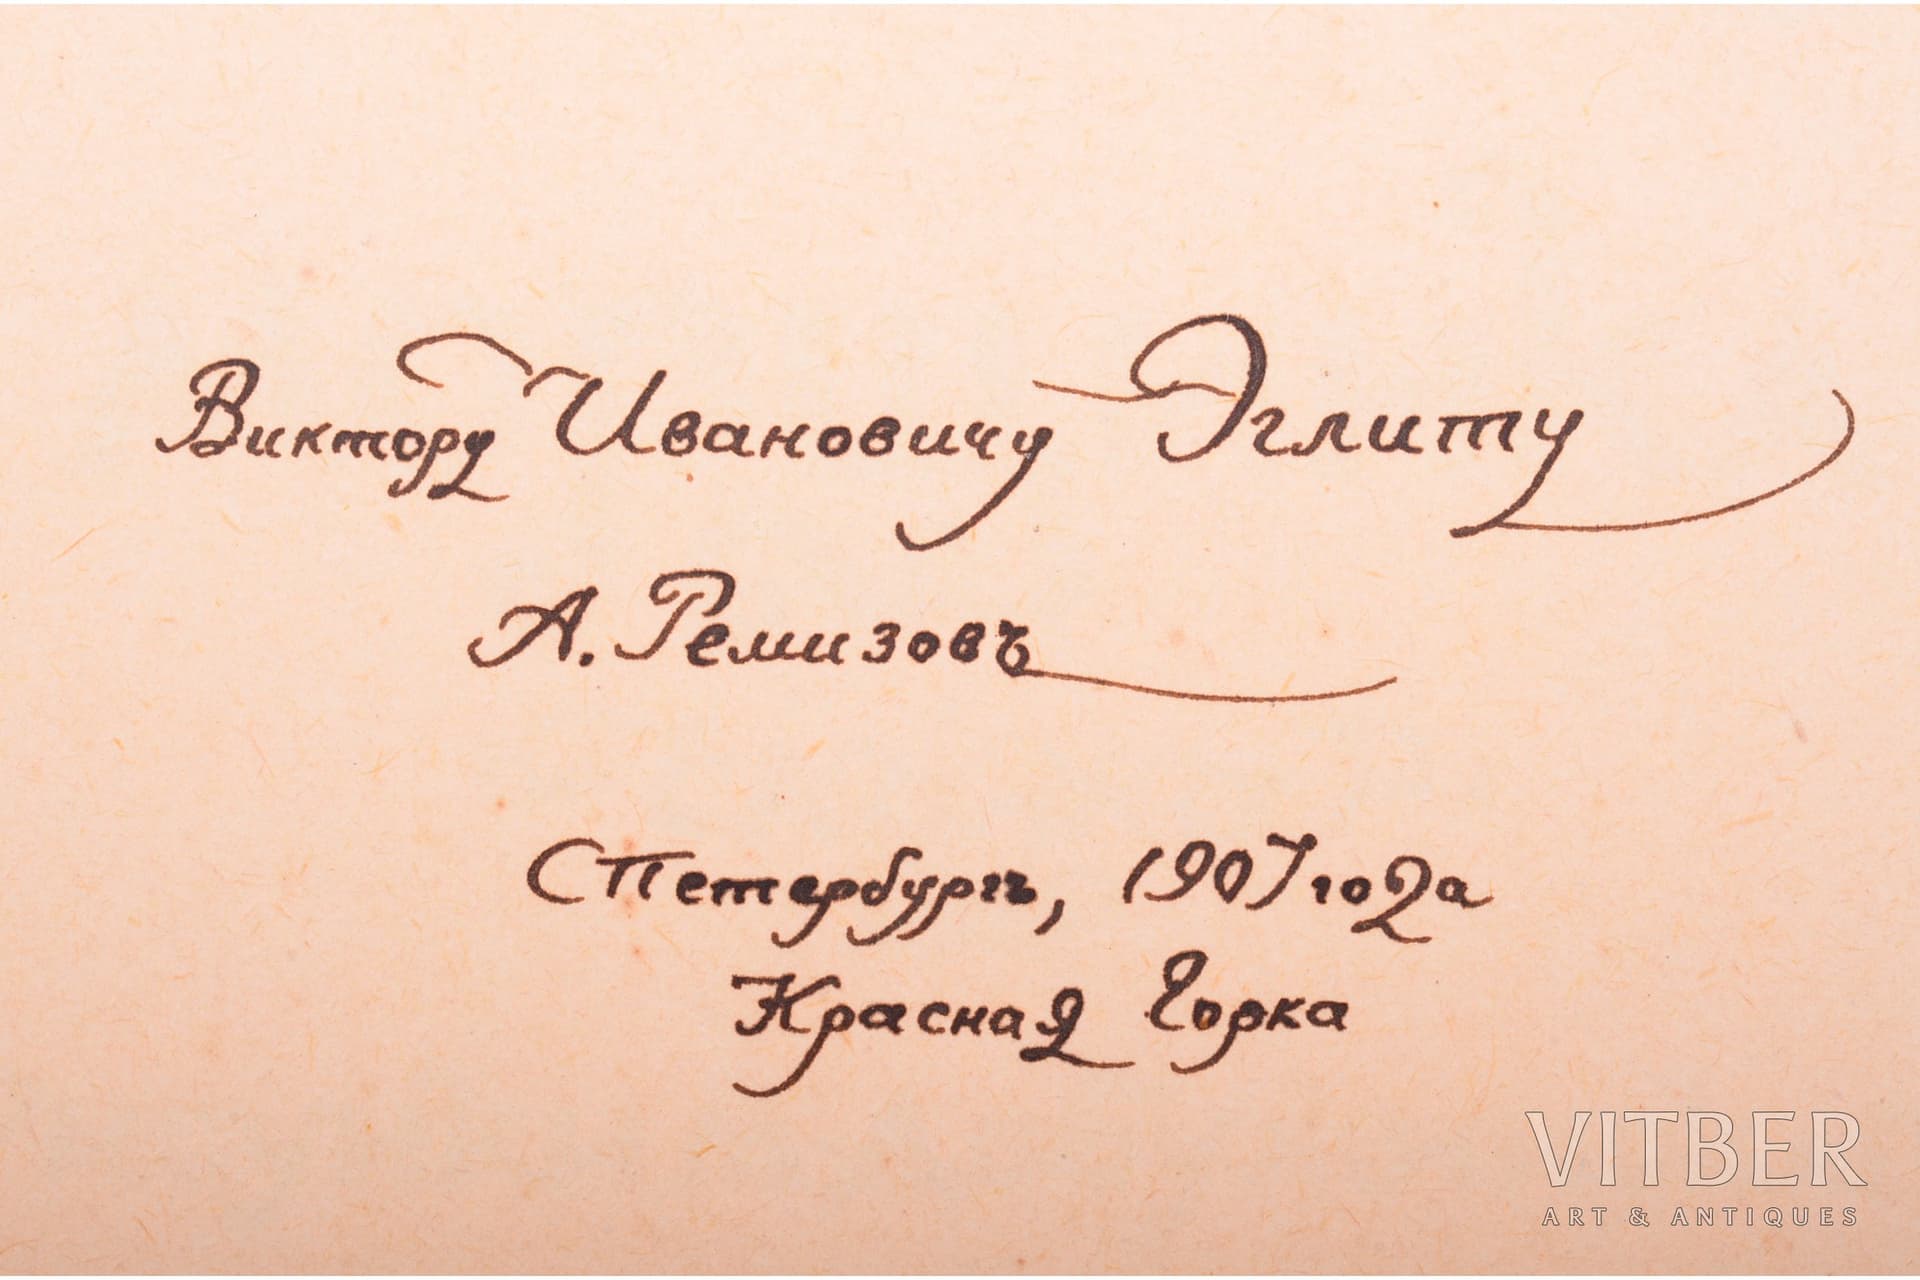 Виктору Ивановичу Эглиту
А. Ремизовъ
СПетербургъ, 1907 года
Красная Горка
VITBER
ART & ANTIQUES